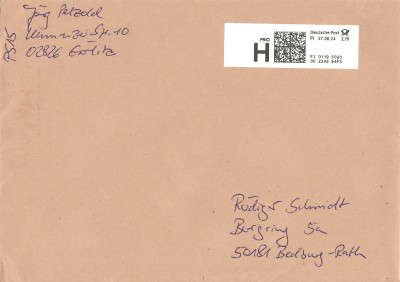 Jörg Petzold
10
02826 Görlitz
PRIO
H
Deutsche Post
FI 27.08.24 2,75
F1 0119 F020
00 2348 E4F3
Rüdiger Schmidt
Burgring 5a
50181 Bedburg-Rath